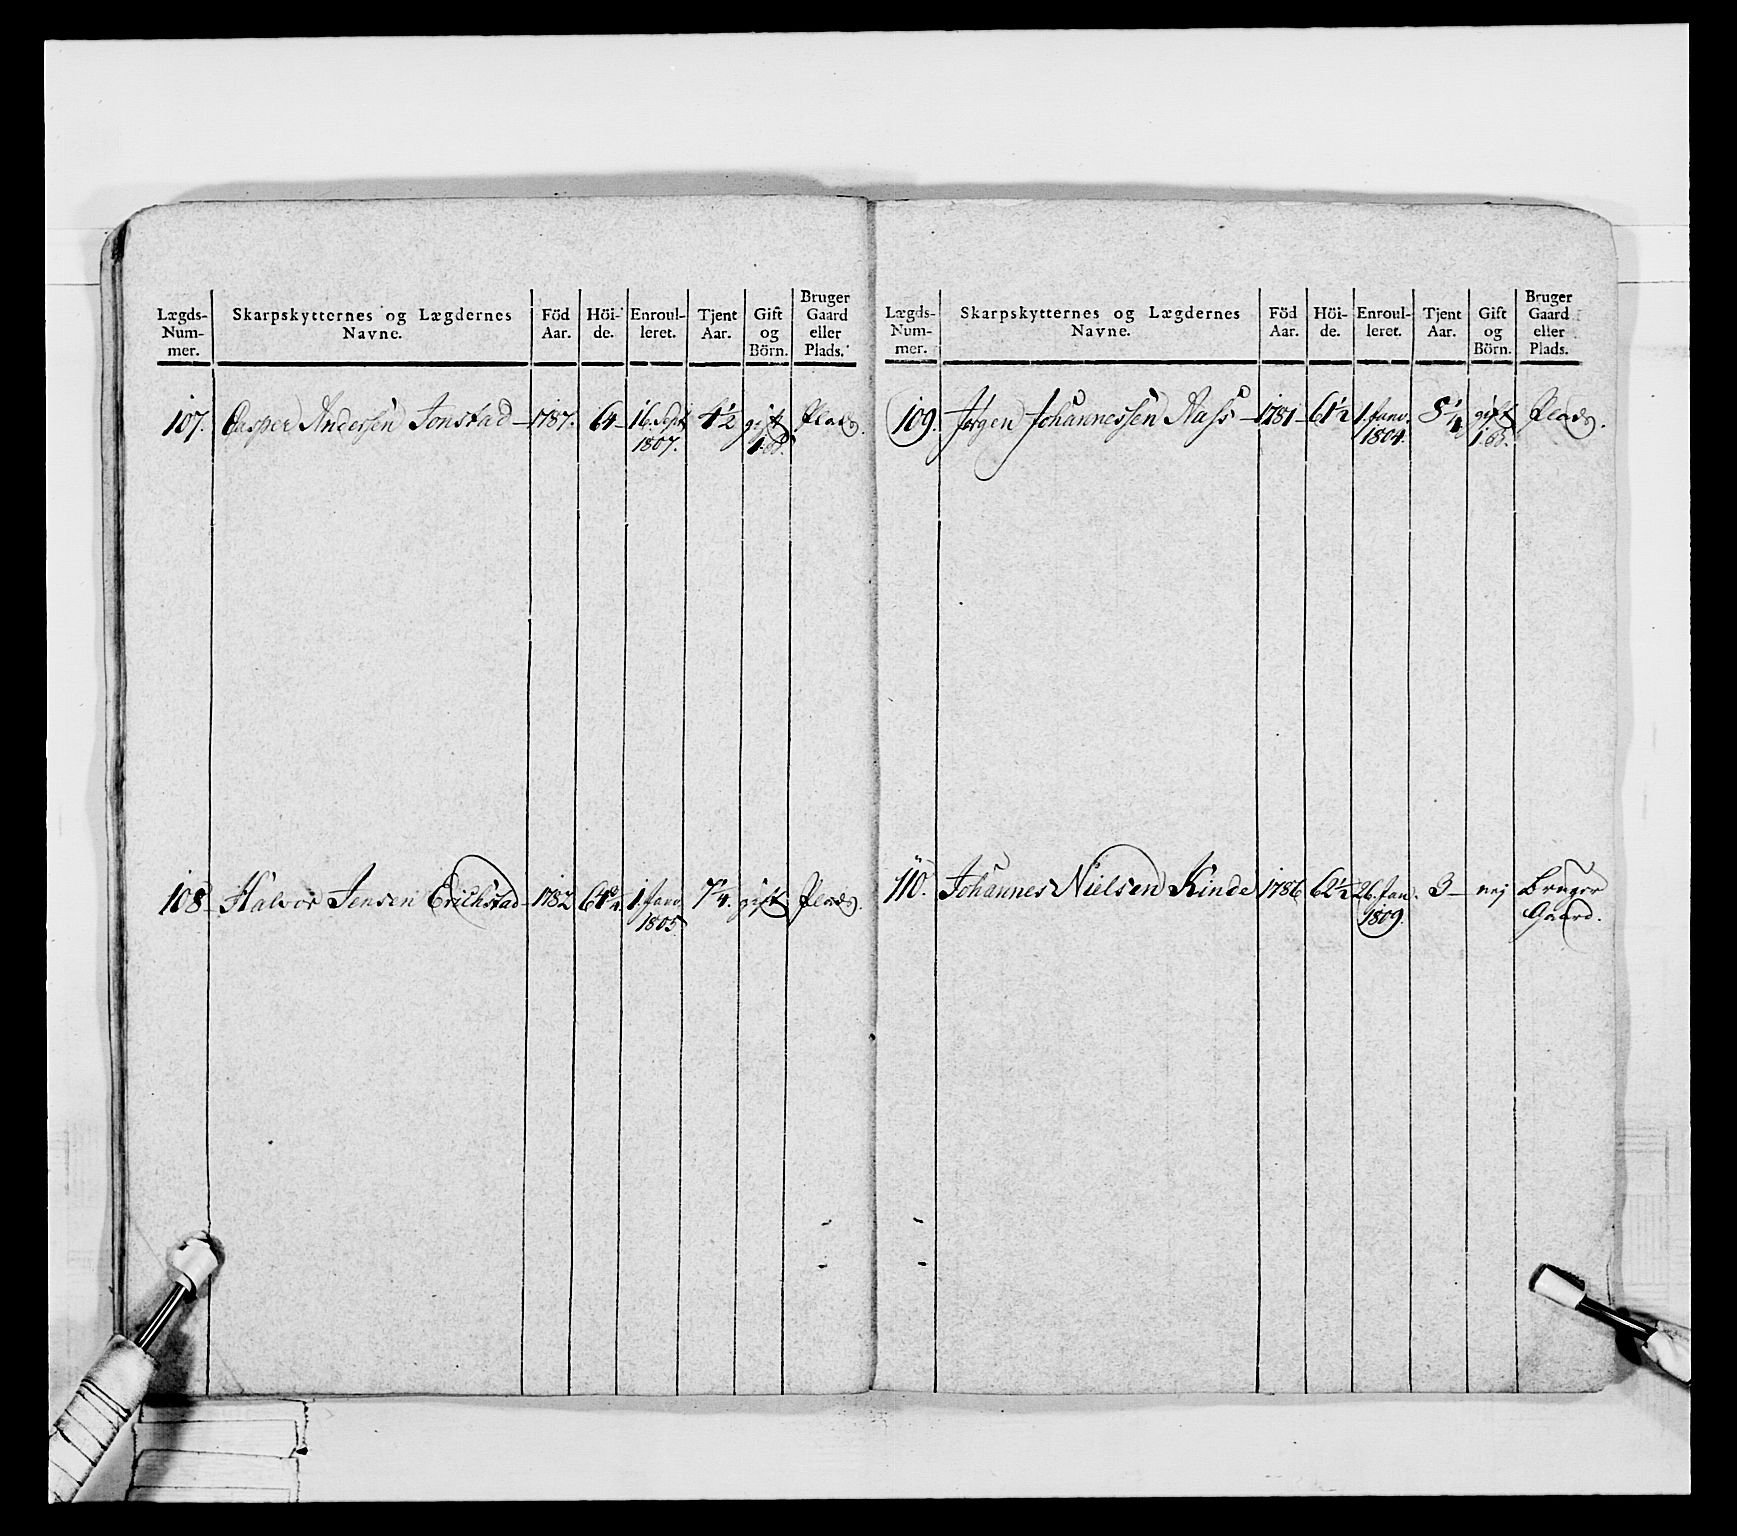 Lægds-Num-mer. Skarpskytternes og Lægdernes Navne. Föd Aar. Höi-de. Enroul-leret. Tjent Aar. Gift og Börn. Bruger Gaard eller Plads.
107. Casper Andersen Jonstad – 1787. 64 – 16. Sept 4½ gift Plads.
1807. 1. B.
108 – Halvor Jensen Erichstad – 1782 64¾ 1. Janv. 7¼. gift Plads.
1805.
Lægds-Num-mer. Skarpskytternes og Lægdernes Navne. Föd Aar. Höi-de. Enroul-leret. Tjent Aar. Gift og Börn. Bruger Gaard eller Plads.
109. Jörgen Johannessen Aass – 1781 – 61½ 1. Janv. 8¼ gift Plads.
1804. 1. B.
110. Johannes Nielsen Kinde 1786 62½ 26. Jan. 3 – nej Bruger
1809. Gaard.